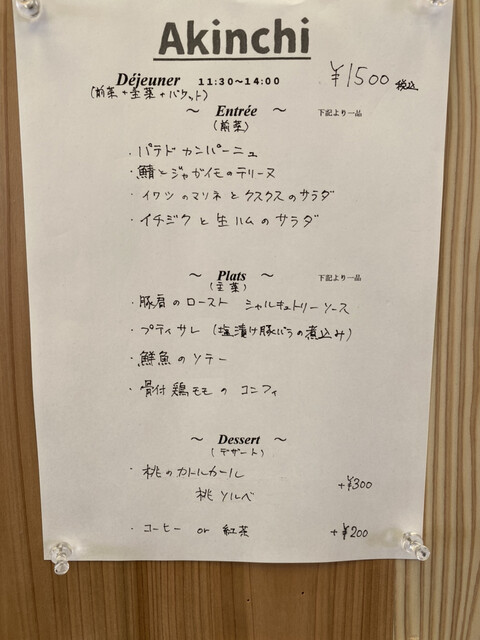 Akinchi
Déjeuner 11:30~14:00 ¥1500 税込
(前菜+主菜+バケット)
~ Entrée ~ 下記より一品
(前菜)
・パテドカンパーニュ
・鯖とジャガイモのテリーヌ
・イワシのマリネとクスクスのサラダ
・イチジクと生ハムのサラダ
~ Plats ~ 下記より一品
(主菜)
・豚肩のロースト シャルキュトリーソース
・プティサレ (塩漬け豚バラの煮込み)
・鮮魚のソテー
・骨付鶏モモの コンフィ
~ Dessert ~
(デザート)
・桃のカトルカール
桃ソルベ +¥300
・コーヒー or 紅茶 +¥200